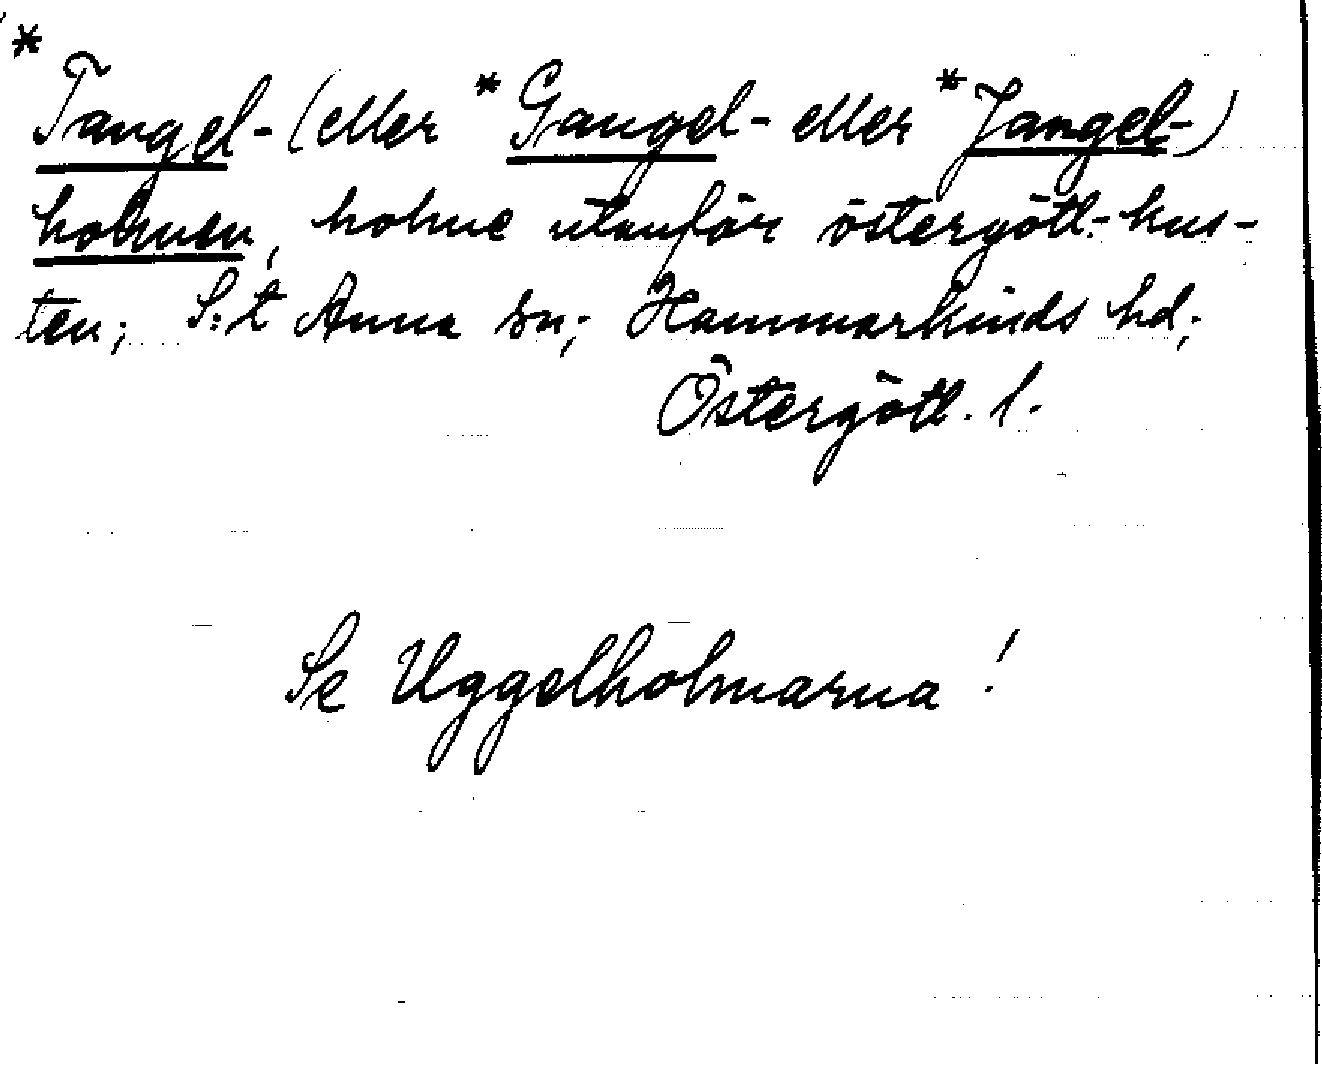 *Tangel- (eller *Gangel- eller *Jangel-)
holmen, holme utanför östergötl. kus-
ten; S:t Anna sn; Hammarkinds hd;
Östergötl. l.
Se Uggelholmarna!